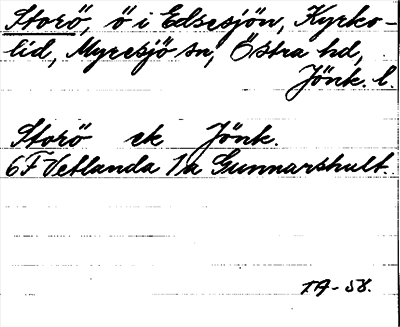 Storö, ö i Edsesjön, Kyrko-
lid, Myresjö sn, Östra hd,
Jönk. l.
Storö ek Jönk.
6F Vetlanda 1a Gunnarshult.
TA-58.